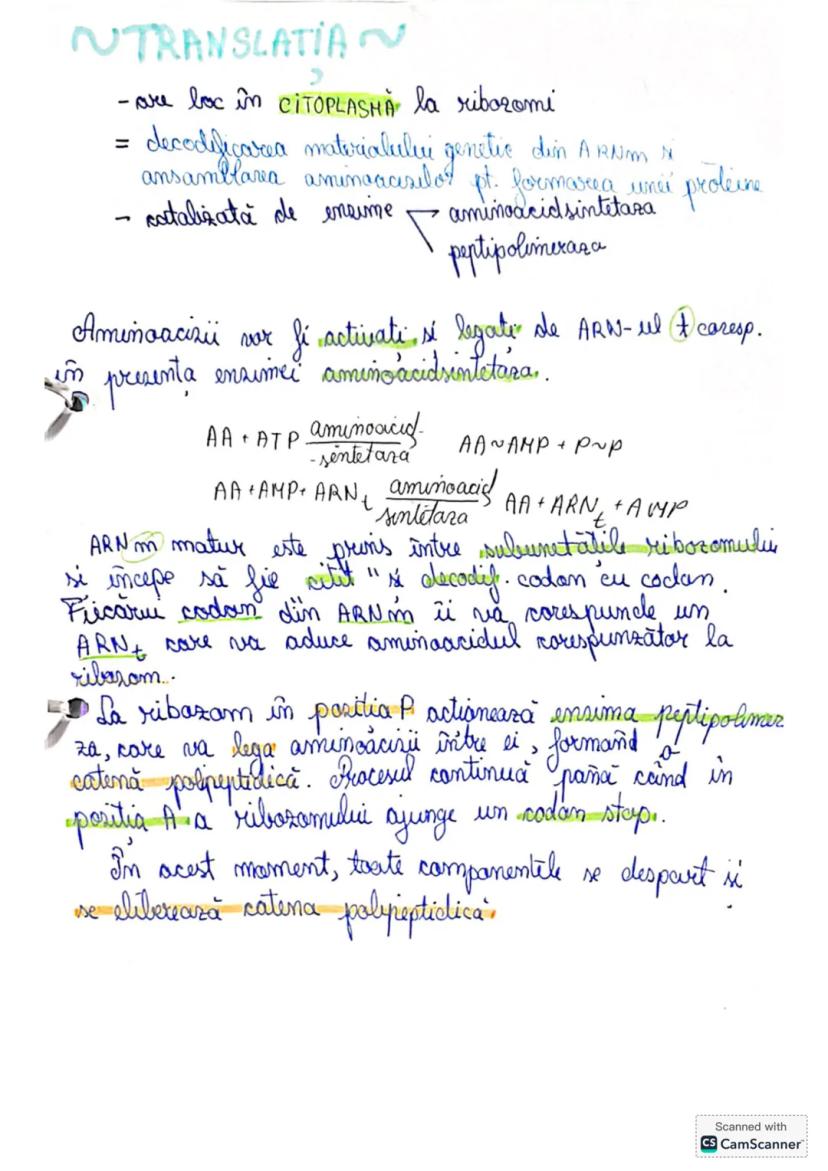 ~TRANSLAȚIA~
- are loc în CITOPLASMĂ la ribozomi
= decodificarea materialului genetic din ARNm și
ansamblarea aminoacizilor pt. formarea unei proteine
- catalizată de enzime aminoacidsintetaza
peptipolimeraza
Aminoacizii vor fi activați și legați de ARN-ul t coresp.
în prezența enzimei aminoacidsintetaza.
AA + ATP aminoacid-
-sintetaza AA~AMP + P~P
AA+AMP+ ARNt aminoacid
sintetaza AA + ARNt + AMP
ARNm matur este prins între subunetățile ribozomului
și începe să fie "citit" și decodif. codon cu codon.
Fiecărui codon din ARNm îi va corespunde un
ARNt care va aduce aminoacidul corespunzător la
ribozom.
La ribozom în poziția P acționează enzima peptipolimera
za, care va lega aminoacizii între ei, formând o
catenă polipeptidică. Procesul continuă până când în
poziția A a ribozomului ajunge un codon stop.
În acest moment, toate componentele se despart și
se eliberează catena polipeptidică.
Scanned with
CS CamScanner